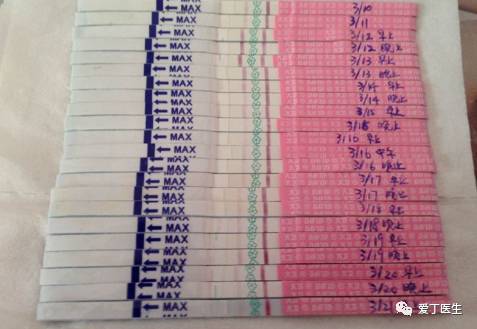 MAX 3/10
MAX 3/11
MAX 3/12 早上
MAX 3/12 晚上
MAX 3/13 早上
MAX 3/13 晚上
MAX 3/14 早上
MAX 3/14 晚上
MAX 3/15 早上
MAX 3/15 晚上
MAX 3/16 早上
MAX 3/16 中午
MAX 3/16 晚上
MAX 3/17 早上
MAX 3/17 晚上
MAX 3/18 早上
MAX 3/18 晚上
MAX 3/19 早上
MAX 3/19 晚上
MAX 3/20 早上
MAX 3/20 晚上
MAX 3/21
爱丁医生